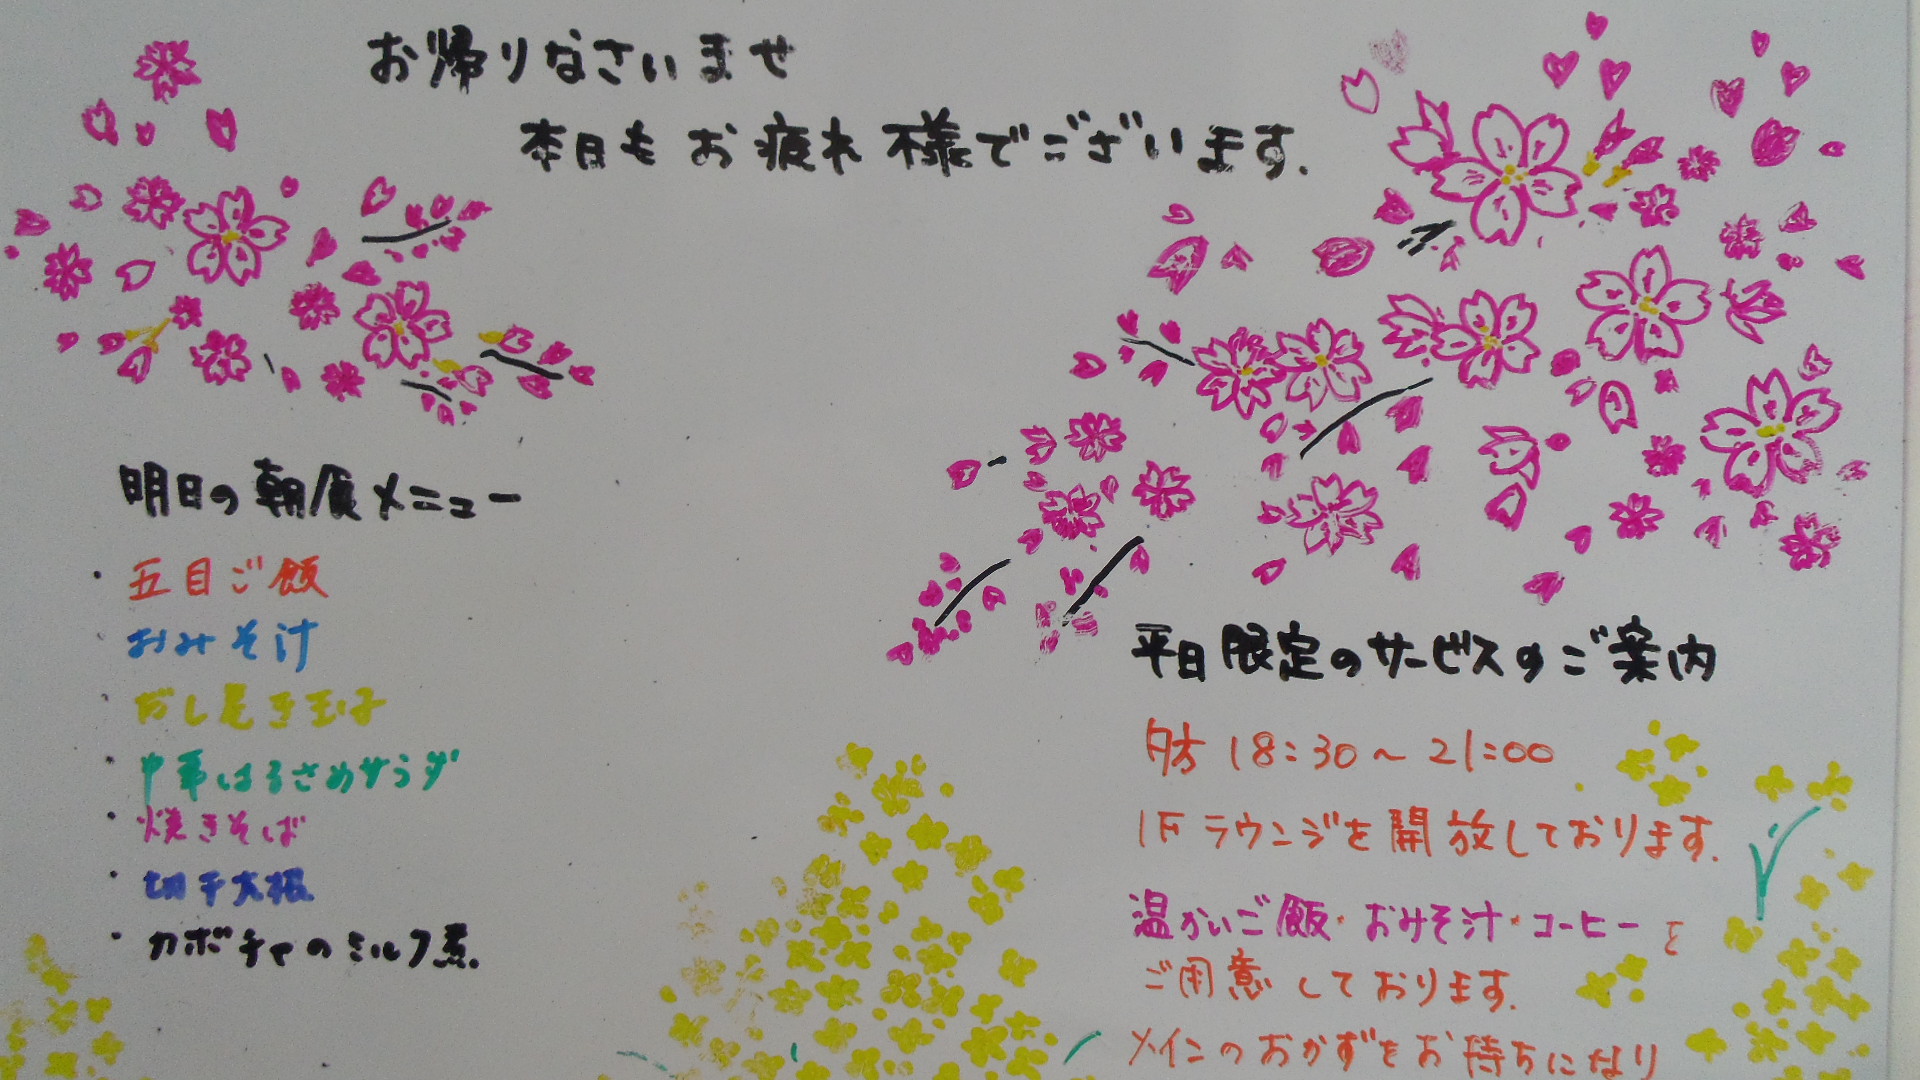 お帰りなさいませ
本日もお疲れ様でございます.
明日の朝食メニュー
・五目ご飯
おみそ汁
・だし巻き玉子
・中華はるさめサラダ
・焼きそば
・切干大根
・カボチャのミルク煮.
平日限定のサービスのご案内
夕方 18:30〜21:00
1Fラウンジを開放しております.
温かいご飯・おみそ汁・コーヒーを
ご用意しております.
メインのおかずをお持ちになり